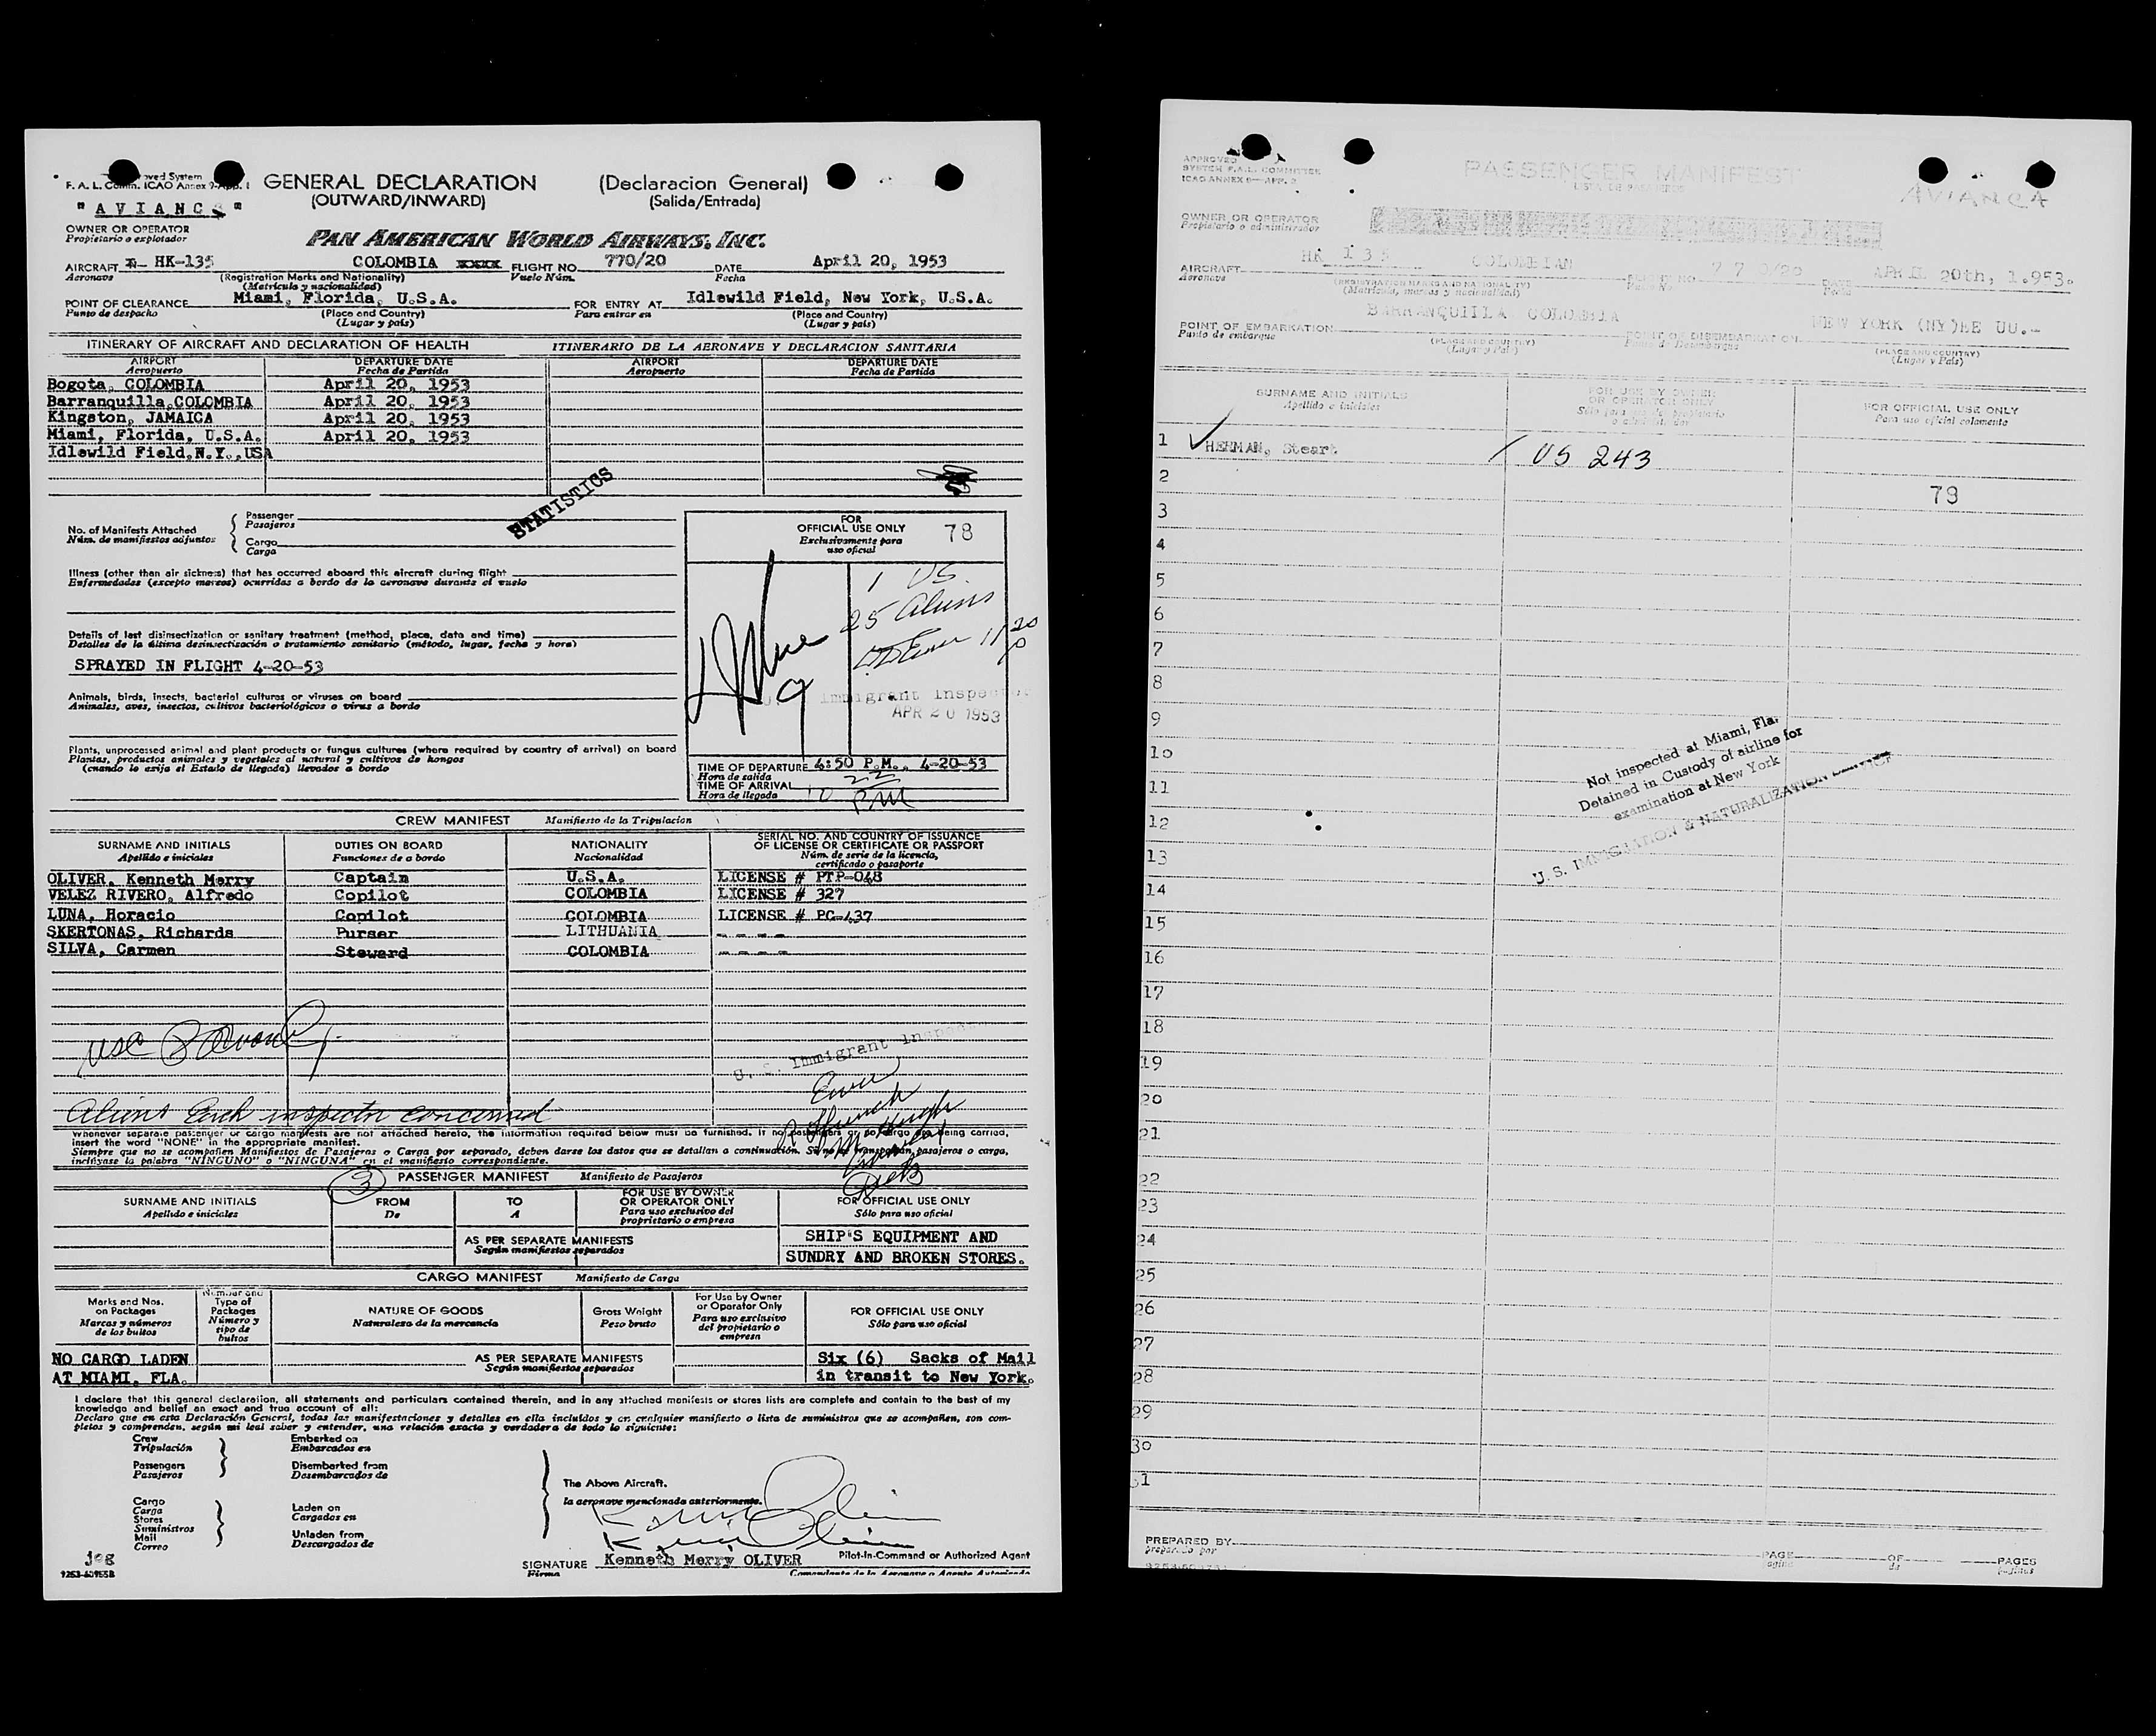 GENERAL DECLARATION (Declaracion General)
(OUTWARD/INWARD) (Salida/Entrada)
F. A. L. Comm. ICAO Annex 9-App. 1
"AVIANCA"
OWNER OR OPERATOR
Propietario o explotador
PAN AMERICAN WORLD AIRWAYS, INC.
AIRCRAFT HK-135 COLOMBIA xxxx FLIGHT NO. 770/20 DATE April 20, 1953
Aeronave (Registration Marks and Nationality) Vuelo Núm. Fecha
(Matrícula y nacionalidad)
POINT OF CLEARANCE Miami, Florida, U.S.A. FOR ENTRY AT Idlewild Field, New York, U.S.A.
Punto de despacho (Place and Country) Para entrar en (Place and Country)
(Lugar y país) (Lugar y país)
ITINERARY OF AIRCRAFT AND DECLARATION OF HEALTH ITINERARIO DE LA AERONAVE Y DECLARACION SANITARIA
AIRPORT DEPARTURE DATE AIRPORT DEPARTURE DATE
Aeropuerto Fecha de Partida Aeropuerto Fecha de Partida
Bogota, COLOMBIA April 20, 1953
Barranquilla,COLOMBIA April 20, 1953
Kingston, JAMAICA April 20, 1953
Miami, Florida, U.S.A. April 20, 1953
Idlewild Field,N.Y.,USA
STATISTICS
No. of Manifests Attached
Núm. de manifiestos adjuntos
Passenger
Pasajeros
Cargo
Carga
FOR
OFFICIAL USE ONLY 78
Exclusivamente para
uso oficial
1 US.
25 Aliens
Illness (other than air sickness) that has occurred aboard this aircraft during flight
Enfermedades (excepto mareos) ocurridas a bordo de la aeronave durante el vuelo
Details of last disinsectization or sanitary treatment (method, place, date and time)
Detalles de la última desinsectización o tratamiento sanitario (método, lugar, fecha y hora)
SPRAYED IN FLIGHT 4-20-53
Animals, birds, insects, bacterial cultures or viruses on board
Animales, aves, insectos, cultivos bacteriológicos o virus a bordo
Immigrant Inspec
APR 20 1953
Plants, unprocessed animal and plant products or fungus cultures (where required by country of arrival) on board
Plantas, productos animales y vegetales al natural y cultivos de hongos
(cuando lo exija el Estado de llegada) llevados a bordo
TIME OF DEPARTURE 4:50 P.M., 4-20-53
Hora de salida
TIME OF ARRIVAL 10 22 PM
Hora de llegada
CREW MANIFEST Manifiesto de la Tripulacion
SURNAME AND INITIALS DUTIES ON BOARD NATIONALITY SERIAL NO. AND COUNTRY OF ISSUANCE
OF LICENSE OR CERTIFICATE OR PASSPORT
Apellido e iniciales Funciones de a bordo Nacionalidad Núm. de serie de la licencia,
certificado o pasaporte
OLIVER, Kenneth Merry Captain U.S.A. LICENSE # PTP-048
VELEZ RIVERO, Alfredo Copilot COLOMBIA LICENSE # 327
LUNA, Horacio Copilot COLOMBIA LICENSE # PC-437
SKERTONAS, Richards Purser LITHUANIA - - - -
SILVA, Carmen Steward COLOMBIA - - - -
U. S. Immigrant Inspec
Aliens Each inspector concerned
Whenever separate passenger or cargo manifests are not attached hereto, the information required below must be furnished. If no passengers or no cargo are being carried,
insert the word "NONE" in the appropriate manifest.
Siempre que no se acompañen Manifiestos de Pasajeros o Carga por separado, deben darse los datos que se detallan a continuación. Si no se transportan pasajeros o carga,
inclúyase la palabra "NINGUNO" o "NINGUNA" en el manifiesto correspondiente.
3 PASSENGER MANIFEST Manifiesto de Pasajeros
SURNAME AND INITIALS FROM TO FOR USE BY OWNER
OR OPERATOR ONLY FOR OFFICIAL USE ONLY
Apellido e iniciales De A Para uso exclusivo del
propietario o empresa Sólo para uso oficial
AS PER SEPARATE MANIFESTS SHIP'S EQUIPMENT AND
Según manifiestos separados SUNDRY AND BROKEN STORES.
CARGO MANIFEST Manifiesto de Carga
Marks and Nos.
on Packages
Marcas y números
de los bultos
Number and
Type of
Packages
Número y
tipo de
bultos
NATURE OF GOODS
Naturaleza de la mercancía
Gross Weight
Peso bruto
For Use by Owner
or Operator Only
Para uso exclusivo
del propietario o
empresa
FOR OFFICIAL USE ONLY
Sólo para uso oficial
NO CARGO LADEN AS PER SEPARATE MANIFESTS Six (6) Sacks of Mail
AT MIAMI, FLA. Según manifiestos separados in transit to New York.
I declare that this general declaration, all statements and particulars contained therein, and in any attached manifests or stores lists are complete and contain to the best of my
knowledge and belief an exact and true account of all:
Declaro que en esta Declaración General, todas las manifestaciones y detalles en ella incluídos y en cualquier manifiesto o lista de suministros que se acompañen, son com-
pletos y comprenden, según mi leal saber y entender, una relación exacta y verdadera de todo lo siguiente:
Crew Embarked on
Tripulación Embarcados en
Passengers Disembarked from
Pasajeros Desembarcados de
The Above Aircraft.
la aeronave mencionada anteriormente.
Cargo
Carga Laden on
Stores Cargados en
Suministros
Mail Unladen from
Correo Descargados de
jeg
SIGNATURE Kenneth Merry OLIVER Pilot-in-Command or Authorized Agent
Firma Comandante de la Aeronave o Agente Autorizado
9253-60955B
APPROVED
SYSTEM F.A.L. COMMITTEE
ICAO ANNEX 9—APP. 2
PASSENGER MANIFEST
LISTA DE PASAJEROS
AVIANCA
OWNER OR OPERATOR
Propietario o administrador
AIRCRAFT HK 135 COLOMBIAN 770/20 APRIL 20th, 1.953.
Aeronave (REGISTRATION MARKS AND NATIONALITY)
(Matrícula, marcas y nacionalidad)
POINT OF EMBARKATION BARRANQUILLA COLOMBIA POINT OF DISEMBARKATION NEW YORK (NY)EE UU.-
Punto de embarque (PLACE AND COUNTRY) Punto de Desembarque (PLACE AND COUNTRY)
(Lugar y País) (Lugar y País)
SURNAME AND INITIALS
Apellido e iniciales
FOR USE BY OWNER
OR OPERATOR ONLY
FOR OFFICIAL USE ONLY
Para uso oficial solamente
1 HERMAN, Steart US 243
2
78
3
4
5
6
7
8
9
10
11
12
13
14
15
16
17
18
19
20
21
22
23
24
25
26
27
28
29
30
31
Not inspected at Miami, Fla.
Detained in Custody of airline for
examination at New York
U. S. IMMIGRATION & NATURALIZATION SERVICE
PREPARED BY PAGE OF PAGES
preparado por página de páginas